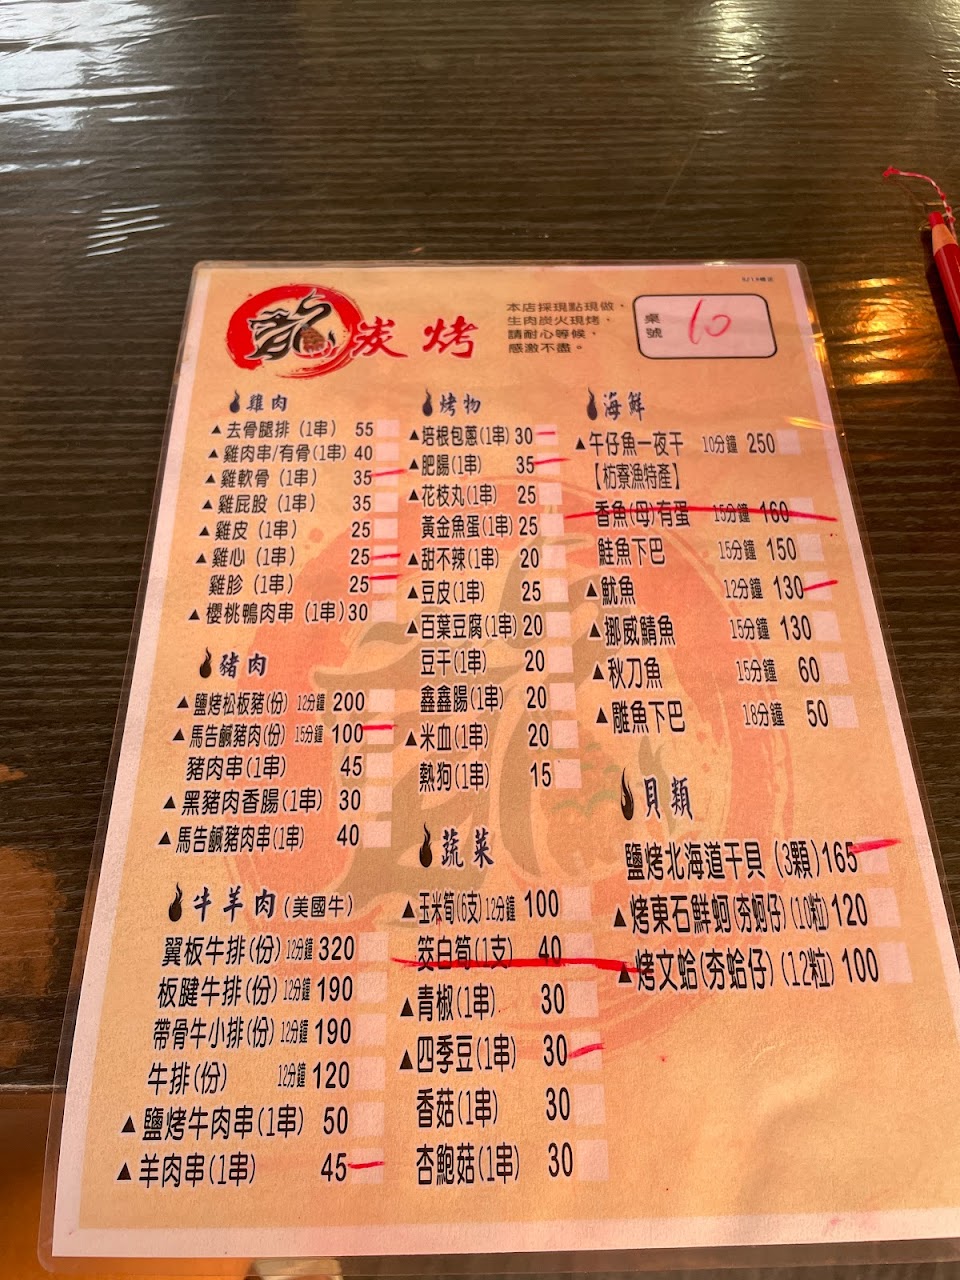 龍炭烤
本店採現點現做，
生肉炭火現烤，
請耐心等候，
感激不盡。
桌號
10
雞肉
▲去骨腿排（1串） 55
▲雞肉串/有骨(1串) 40
▲雞軟骨（1串） 35
▲雞屁股（1串） 35
▲雞皮（1串） 25
▲雞心（1串） 25
雞胗（1串） 25
▲櫻桃鴨肉串（1串）30
豬肉
▲鹽烤松板豬(份) 12分鐘 200
▲馬告鹹豬肉(份) 15分鐘 100
豬肉串(1串) 45
▲黑豬肉香腸(1串) 30
▲馬告鹹豬肉串(1串) 40
牛羊肉(美國牛)
翼板牛排(份) 12分鐘 320
板腱牛排(份) 12分鐘 190
帶骨牛小排(份) 12分鐘 190
牛排(份) 12分鐘 120
▲鹽烤牛肉串(1串) 50
▲羊肉串(1串) 45
烤物
▲培根包蔥(1串) 30
▲肥腸(1串) 35
▲花枝丸(1串) 25
黃金魚蛋(1串) 25
▲甜不辣(1串) 20
▲豆皮(1串) 25
▲百葉豆腐(1串) 20
豆干(1串) 20
鑫鑫腸(1串) 20
▲米血(1串) 20
熱狗(1串) 15
蔬菜
▲玉米筍(6支) 12分鐘 100
筊白筍(1支) 40
▲青椒(1串) 30
▲四季豆(1串) 30
香菇(1串) 30
杏鮑菇(1串) 30
海鮮
▲午仔魚一夜干 10分鐘 250
【枋寮漁特產】
香魚(母)有蛋 15分鐘 160
鮭魚下巴 15分鐘 150
▲魷魚 12分鐘 130
▲挪威鯖魚 15分鐘 130
▲秋刀魚 15分鐘 60
▲鵰魚下巴 18分鐘 50
貝類
鹽烤北海道干貝（3顆）165
▲烤東石鮮蚵(夯蚵仔)(10粒) 120
▲烤文蛤(夯蛤仔)(12粒) 100